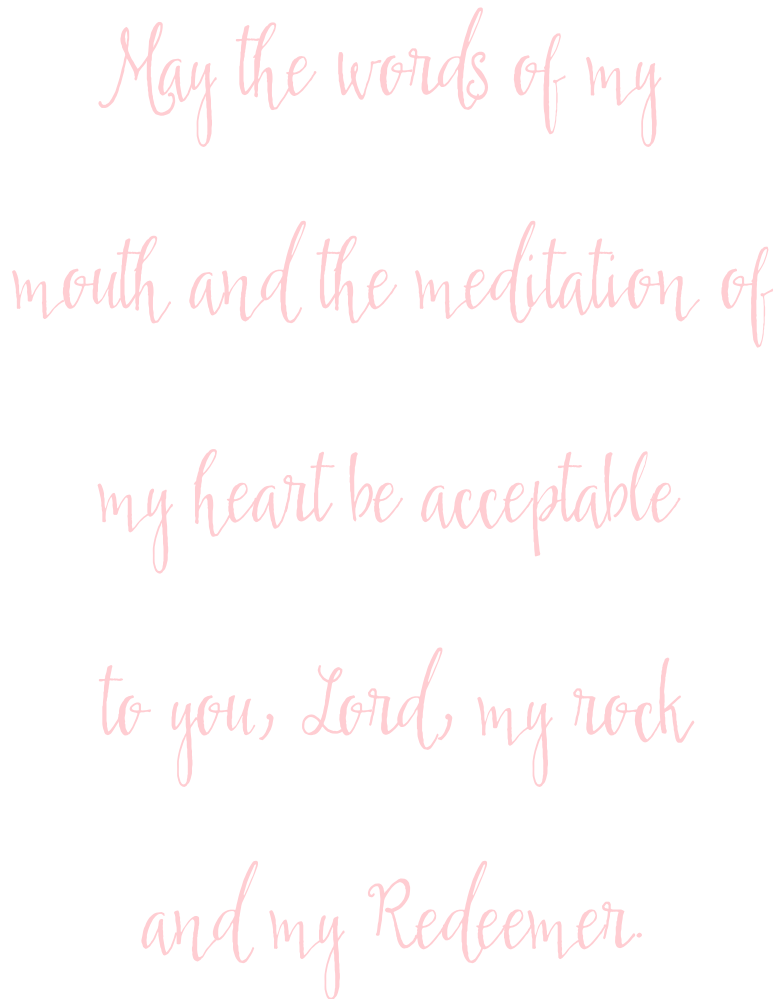 May the words of my
mouth and the meditation of
my heart be acceptable
to you, Lord, my rock
and my Redeemer.